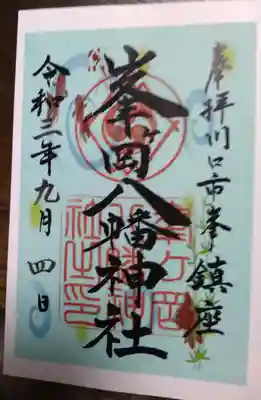 奉拝川口市峯鎮座
峯岡八幡神社
令和三年九月四日